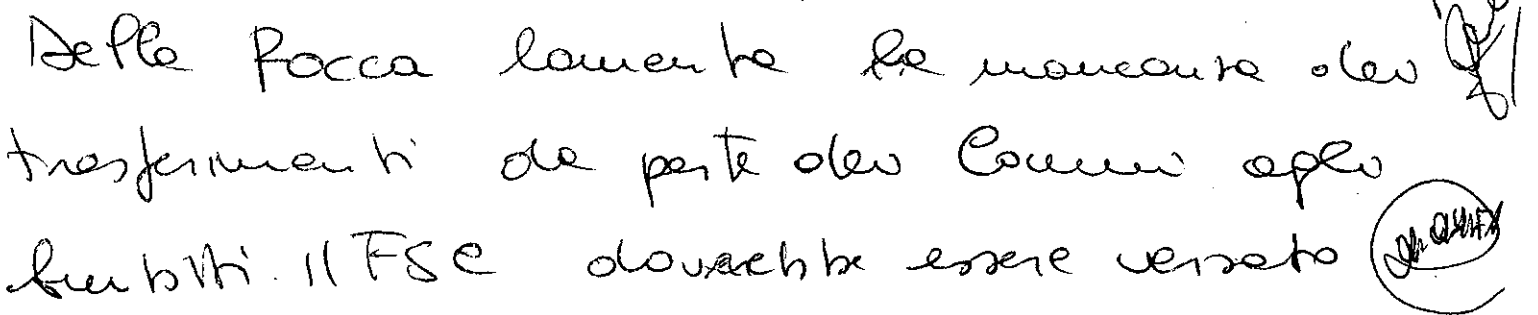 Della Rocca lamenta la mancanza dei
trasferimenti da parte dei Comuni agli
Ambiti. Il FSC dovrebbe essere versato